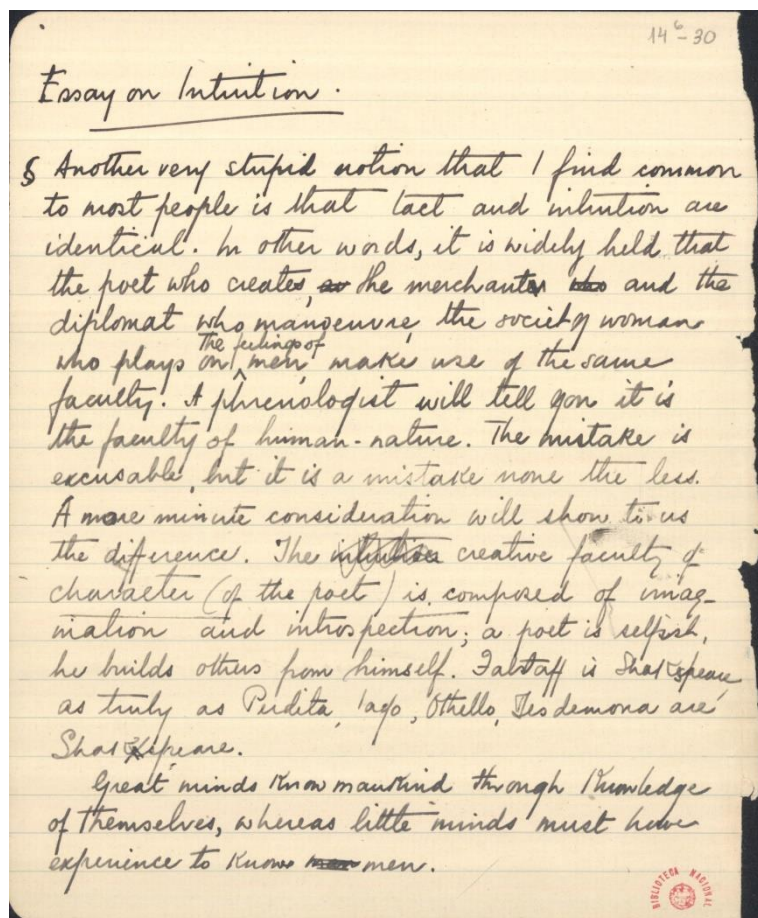 14⁶-30
Essay on Intuition.
§ Another very stupid notion that I find common
to most people is that tact and intuition are
identical. In other words, it is widely held that
the poet who creates, the merchant and the
diplomat who manoeuvre, the society woman
the feelings of
who plays on men, make use of the same
faculty. A phrenologist will tell you it is
the faculty of human-nature. The mistake is
excusable, but it is a mistake none the less.
A more minute consideration will show to us
the difference. The creative faculty of
character (of the poet) is composed of imag-
ination and introspection; a poet is selfish,
he builds others from himself. Falstaff is Shakspeare,
as truly as Perdita, Iago, Othello, Desdemona are
Shakspeare.
Great minds know mankind through knowledge
of themselves, whereas little minds must have
experience to know men.
BIBLIOTECA NACIONAL